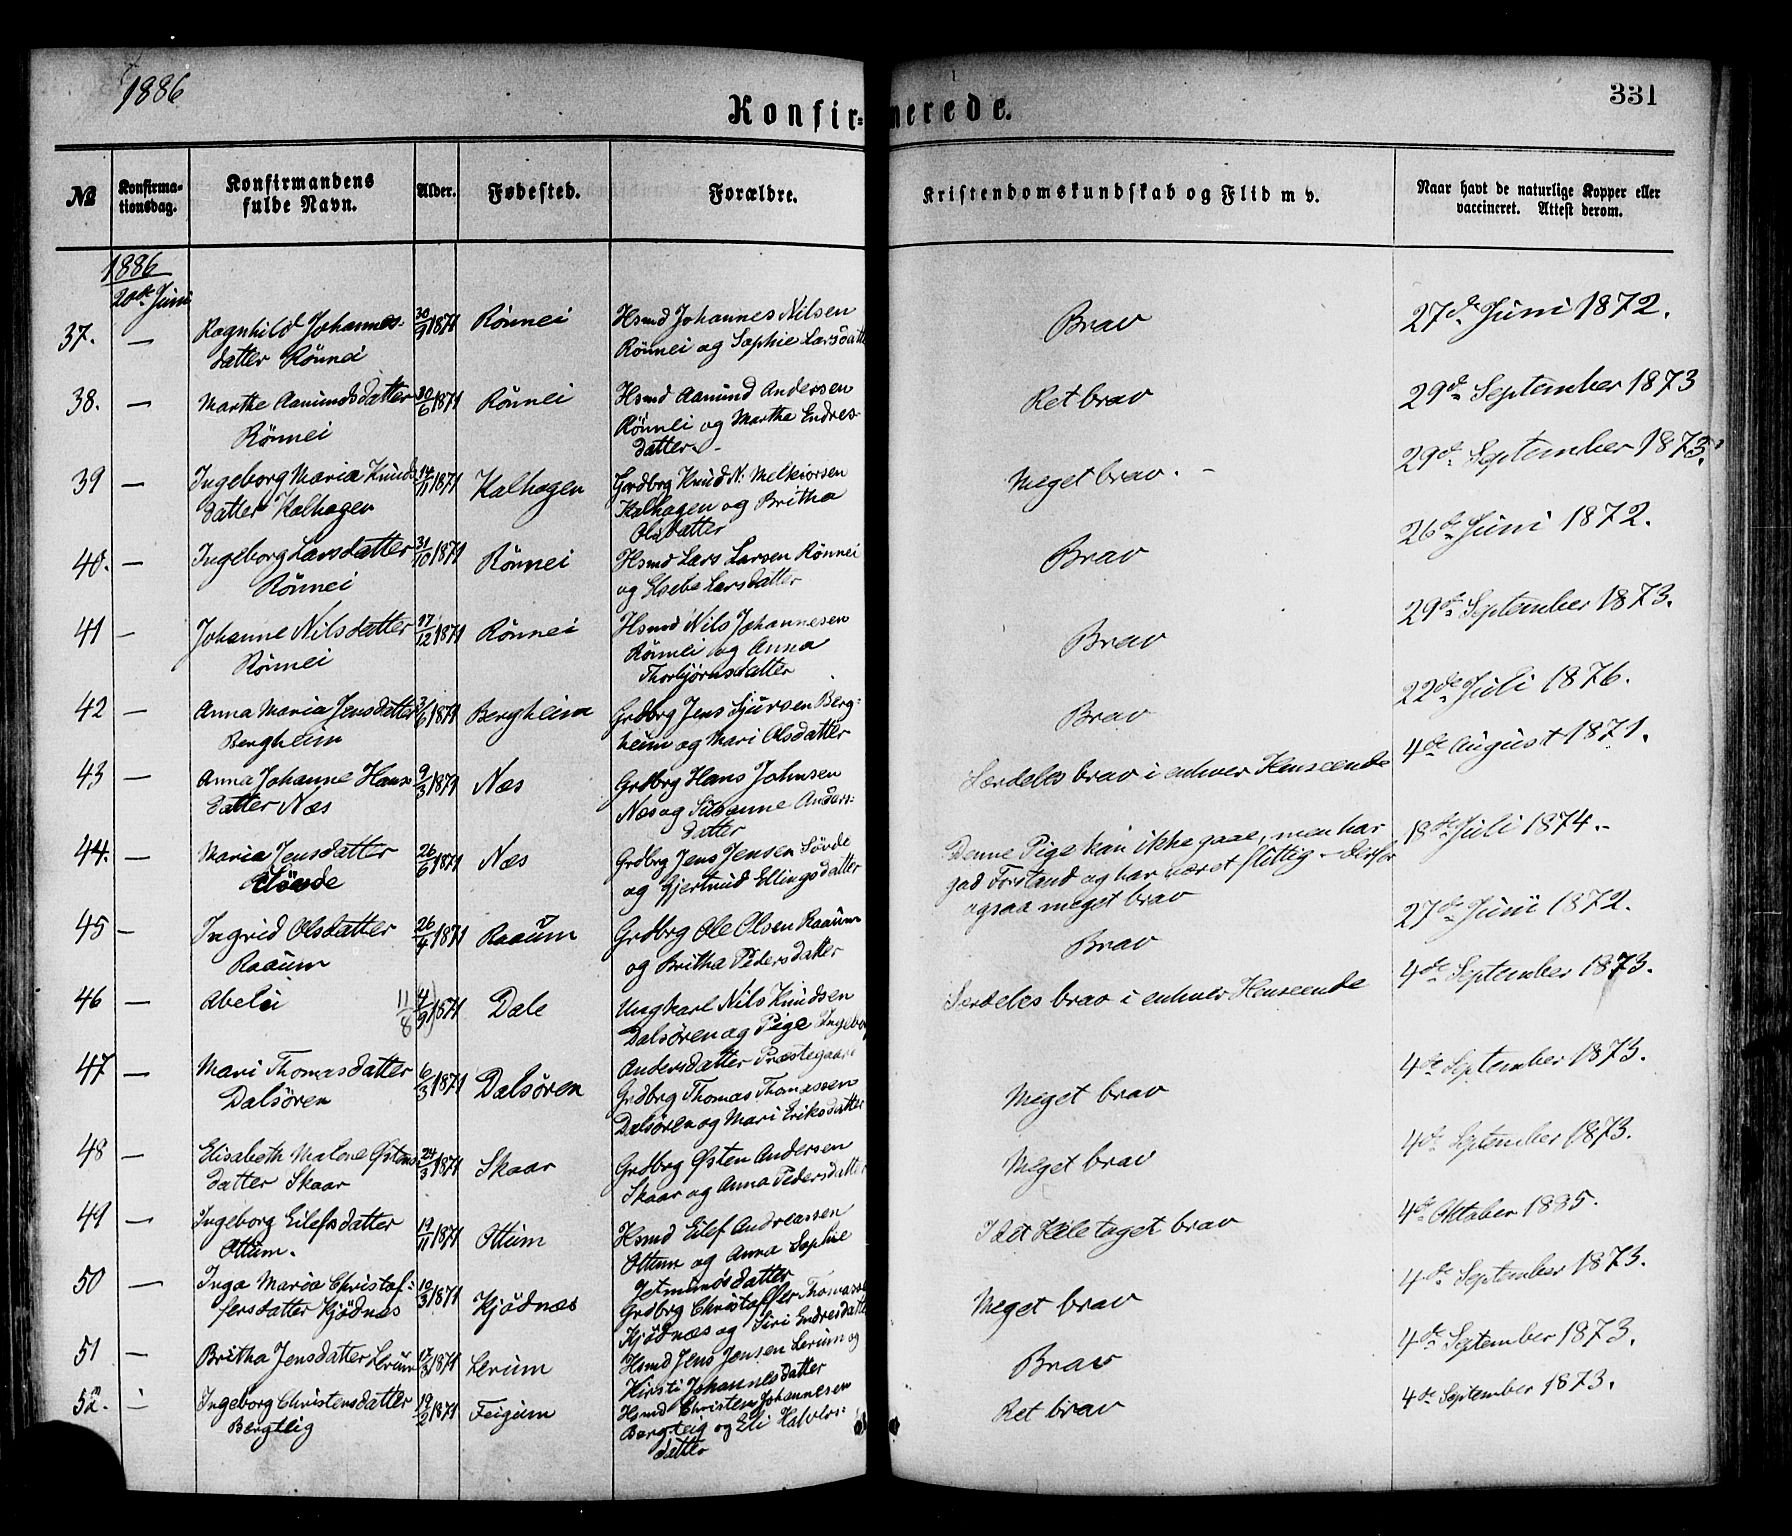 1886
331
Konfir=merede.
№
Konfirma-
tionsdag.
Konfirmandens
fulde Navn.
Alder.
Fødested.
Forældre.
Kristendomskundskab og Flid m v.
Naar havt de naturlige Kopper eller
vaccineret. Attest derom.
1886
20de Juni
37. — Ragnhild Johannes- 30/9 1871 Rönnei Hsmd Johannes Nilsen Brav 27de Juni 1872.
datter Rönnei Rönnei og Sophie Larsdatter
38. — Marthe Aamundsdatter 30/6 1871 Rönnei Hsmd Aamund Andersen Ret brav 29de September 1873
Rönnei Rönnei og Martha Endres-
datter
39 — Ingeborg Maria Knuds 14/11 1871 Kalhagen Grdbrg Knud N. Melkiorsen Meget brav. — 29de September 1873.
datter Kalhagen Kalhagen og Britha
Olsdatter
40. — Ingeborg Larsdatter 31/10 1871 Rönnei Hsmd Lars Larsen Rönnei Brav 26de Juni 1872.
Rönnei og Elsebe Larsdatter
41 — Johanne Nilsdatter 17/12 1871 Rönnei Hsmd Nils Johannesen Brav 29de September 1873.
Rönnei Rönnei og Anna
Thorbjörnsdatter
42 — Anna Maria Jensdatter 1871 Bergheim Grdbrg Jens Sjursen Berg- Brav 22de Juli 1876.
Bergheim heim og Mari Olsdatter
43 — Anna Johanne Hans 9/3 1871 Næs Grdbrg Hans Johnsen Særdeles brav i enhver Henseende 4de August 1871.
datter Næs Næs og Susanne Anders-
datter
44. — Maria Jensdatter 26/6 1871 Næs Grdbrg Jens Jensen Sövde Denne Pige kan ikke gaae, men har 18de Juli 1874.-
Sövde og Gjertrud Ellingsdatter god Forstand og har været flittig — derfor
ogsaa meget brav
45 — Ingrid Olsdatter 26/4 1871 Raaum Grdbrg Ole Olsen Raaum Brav 27de Juni 1872.
Raaum og Britha Pedersdatter
46 — Abelü 11/8 4/9) 1871 Dale Ungkarl Nils Knudsen Særdeles brav i enhver Henseende 4de September 1873.
Dalsören og Pige Ingeborg
Andersdatter Præstegaard
47 — Mari Thomasdatter 6/3 1871 Dalsören Grdbrg Thomas Thomassen Meget brav 4de September 1873.
Dalsören Dalsören og Mari Eriksdatter
48 — Elisabeth Malene Østens 24/3 1871 Skaar Grdbrg Østen Andersen Meget brav 4de September 1873.
datter Skaar Skaar og Anna Pedersdatter
49 — Ingeborg Eilefsdatter 19/11 1871 Ottum Hsmd Eilef Andreassen I det Hele taget brav 4de Oktober 1885.
Ottum. Ottum og Anna Sophie
Jetmundsdatter
50 — Inga Maria Christof- 10/3 1871 Kjödnæs Grdbrg Christoffer Thomassen Meget brav 4de September 1873.
fersdatter Kjödnæs Kjödnæs og Siri Endresdatter
51 — Britha Jensdatter Lerum 17/3 1871 Lerum Hsmd Jens Jensen Lerum og Brav 4de September 1873.
Kirsti Johannesdatter
52. — Ingeborg Christensdatter 19/2 1871 Feigum Hsmd Christen Johannesen Ret brav 4de September 1873.
Bergteig Bergteig og Eli Halvors-
datter